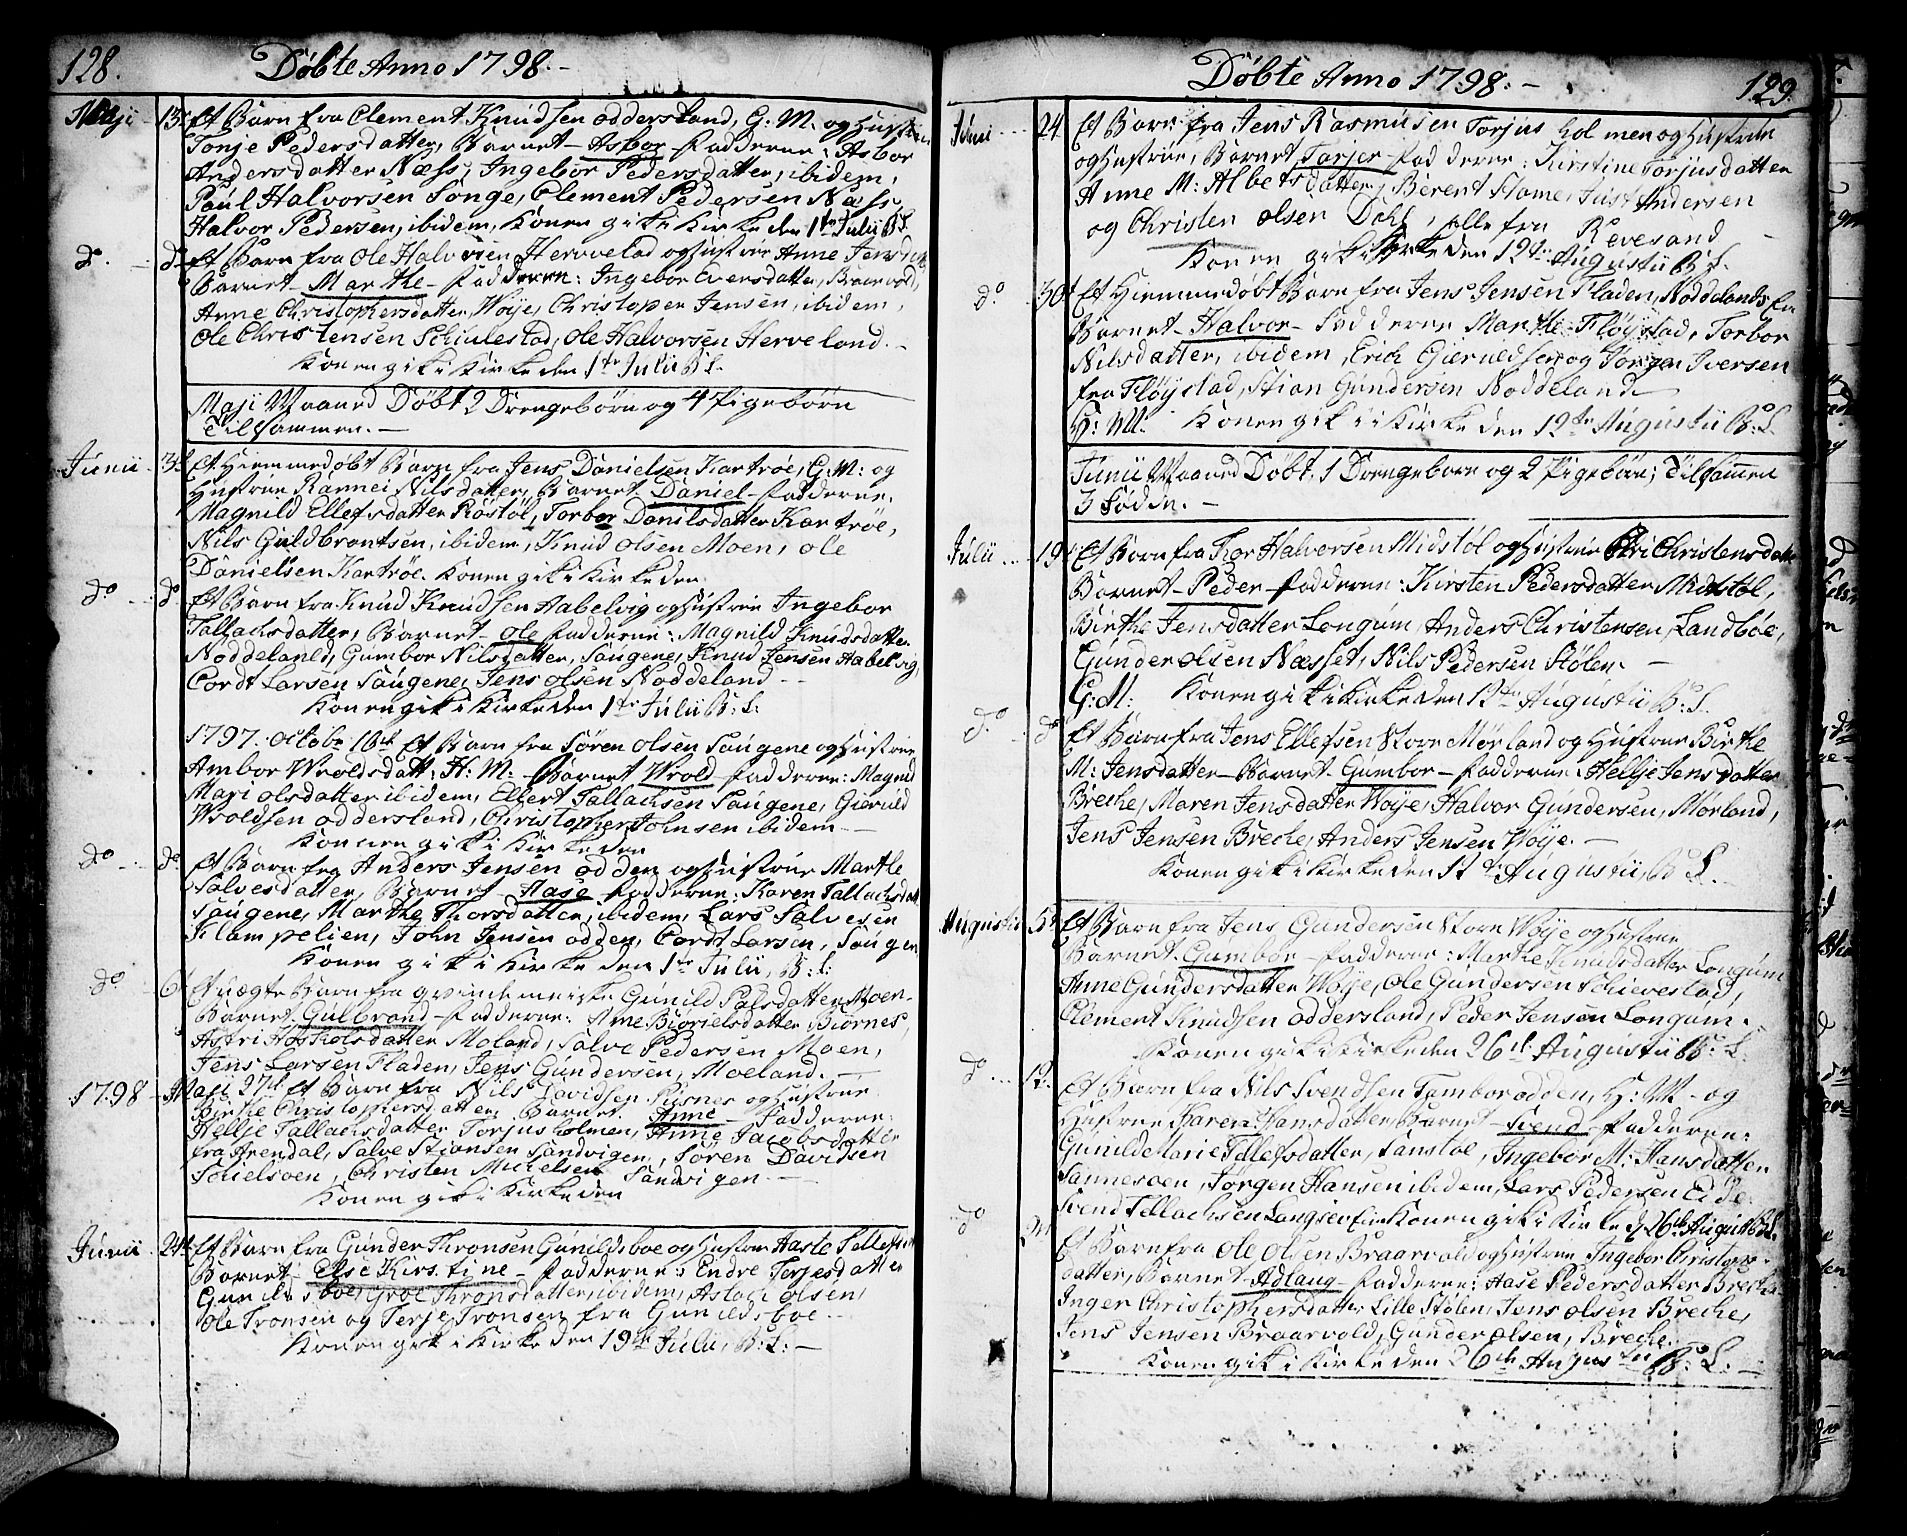 128.
Döbte Anno 1798.-
Maji 13. Et Barn fra Clement Knudsen oddersland, G: M. og Hustrue
Tonje Pedersdatter, Barnet - Asbor - Fadderne: Asbor
Andersdatter Næss, Ingebor Pedersdatter, ibidem,
Poul Halvorsen Songe, Clement Pedersen Næss,
Halvor Pedersen, ibidem, Konen gik i Kirke den 1te Julii B: L.
do. do Et Barn fra Ole Halvorsen Hervelad og Hustrue Anne Jensdatt
Barnet - Marthe - Fadderne: Ingebor Eversdatter, Braarvold,
Anne Christophersdatter Woÿe, Christopher Jensen, ibidem,
Ole Christensen Schiulestad, Ole Halvorsen Herveland.
Konen gik i Kirke den 1te Julii B: L.
Maji Maaned Döbt 2 Drengebörn og 4 Pigebörn
Tilsammen. -
Junii 3. Et Hiemmedöbt Barn fra Jens Danielsen Kartröe, G: M: og
Hustrue Rannei Nilsdatter, Barnet - Daniel - Fadderne,
Magnild Ellefsdatter Röstöl, Torbor Danilsdatter Kartröe,
Nils Guldbrantsen, ibidem, Knud olsen Moen, ole
Danielsen Kartröe. Konen gik i Kirke den
do. do Et Barn fra Knud Knudsen Aabelvig og Hustrue Ingebor
Tallachsdatter, Barnet - Ole Fadderne: Magnild Knudsdatter
Noddeland, Gumbor Nilsdatter, Saugene, Knud Jensen Aabelvig,
Cordt Larsen Saugene, Jens olsen Noddeland -
Konen gik i Kirke den 1te Julii B: L:
1797. Octobr 16de Et Barn fra Sören Olsen Saugene og Hustrue
Ambor Wroldsdatt: H: M: - Barnet Wrold - Fadderne: Magnild
Mari olsdatter ibidem, Elbert Tallachsen Saugene, Gieruld
Wroldsen oddersland, Christopher Johnsen ibidem -
Konnen gik i Kirke den
do. do. Et Barn fra Anders Jensen odden og Hustrue Marthe
Salvesdatter, Barnet - Aase Fadderne: Karen Tallachsdatt
Saugene, Marthe Thorsdatter, ibidem, Lars Salvesen
Klampelien, John Jensen odden, Cordt Larsen, Saugen
Konen gik i Kirke den 1te Julii, B: L:
do 6 Et uægte Barn fra qvindemenniske Gunild Salsdatter Moen -
Barnet - Gulbrand - Fadderne: Anne Biörielsdatter Biörnes,
Astri Hoskolsdatter Moland, Salve Pedersen Moen,
Jens Larsen Fladen, Jens Gundersen, Moeland. -
1798 - Maji 27d Et Barn fra Nils Davidsen Pusnes og Hustrue
Birthe Christophersdatter, Barnet - Anne - Fadderne:
Hellje Tallachsdatter Torjusholmen, Anne Jacobsdatter
fra Arendal, Salve Stiansen Sandvigen, Sören Davidsen
Schielsoen, Christen Michelsen Sandvigen -
Konen gik i Kirke den
Junii 24d Et Barn fra Gunder Thronsen Gunildsboe og Hustrue Aaste Tellefsd
Barnet - Else Kirstine - Fadderne: Endre Terjesdatter
Gunildsboe, Groe Thronsdatter, ibidem, Aslach olsen,
Ole Tronsen og Terje Tronsen fra Gunildsboe
Konen gik i Kirke den 19de Julii, B: L: -
Döbte Anno 1798. -
129.
Junii 24. Et Barn fra Jens Rasmusen Torjusholmen og Hustrue
og Hustrue, Barnet Torjer - Fadderne: Kirstine Torjusdatter
Anne M: Albetsdatter, Berent Homme, Just Andersen
og Christen olsen Dahl, alle fra Revesand -
Konen gik i Kirke den 12te Augustii B: L.
do 30d Et Hiemmedöbt Barn fra Jens Jensen Fladen, Noddelands Eie
Barnet - Halvor - Fadderne Marthe Flöÿstad, Torbor
Nilsdatter, ibidem, Erich Gieruldsen og Jörgen Iversen
fra Flöÿstad, Stian Gundersen Noddeland
H: M. Konen gik i Kirke den 12te Augustii B: L.
Junii Maaned Döbt. 1 Drengebarn og 2 Pigebörn, Tilsammen
3 Föden. -
Julii 19. Et Barn fra Tor Halvorsen Midstöl og Hustrue Siri Christensdatt
Barnet - Peder - Fadderne: Kirsten Pedersdatter Midstöl,
Birthe Jensdatter Longum, Anders Christensen, Landböe,
Gunder olsen Næsset, Nils Pedersen Stölen. -
G: M: Konen gik i Kirke den 12te Augustii B: L.
do. do Et Barn fra Jens Ellefsen Store Mörland og Hustrue Birthe
M: Jensdatter - Barnet - Gumbor - Fadderne: Hellje Jensdatter
Breche, Maren Jensdatter Woÿe, Halvor Gundersen, Morland,
Jens Jensen Breche, Anders Jensen Woÿe. -
Konen gik i Kirke den 12te Augustii, B: L.
Augustii 5. Et Barn fra Jens Gundersen Store Woÿe og Hustrue
Barnet - Gumbor - Fadderne: Marthe Knudsdatter Longum
Anne Gundersdatter Woÿe, Ole Gundersen Schievestad,
Clement Knudsen oddersland, Peder Jensen Longum.
Konen gik i Kirke den 26de Augustii B: L.
do 12. Et Barn fra Nils Svendsen Tamborodden, H: M - og
Hustrue Karen Hansdatter, Barnet - Svend - Fadderne:
Gunild Marie Tellefsdatter, Sanstoe, Ingebor M: Hansdatter
Sannesoen, Jörgen Hansen ibidem, Lars Pedersen Eide
Svend Tellachsen Langsev Eie Konen gik i Kirke d 26de August B: L.
do 21 Et Barn fra Ole Olsen Braarvold og Hustrue Ingebor Christophers
datter, Barnet - Adlaug - Fadderne: Aase Pedersdatter Breche
Inger Christophersdatter Lille Stölen, Jens olsen Breche,
Jens Jensen Braarvold, Gunder olsen, Breche.
Konen gik i Kirke den 26de Augustii B: L. -